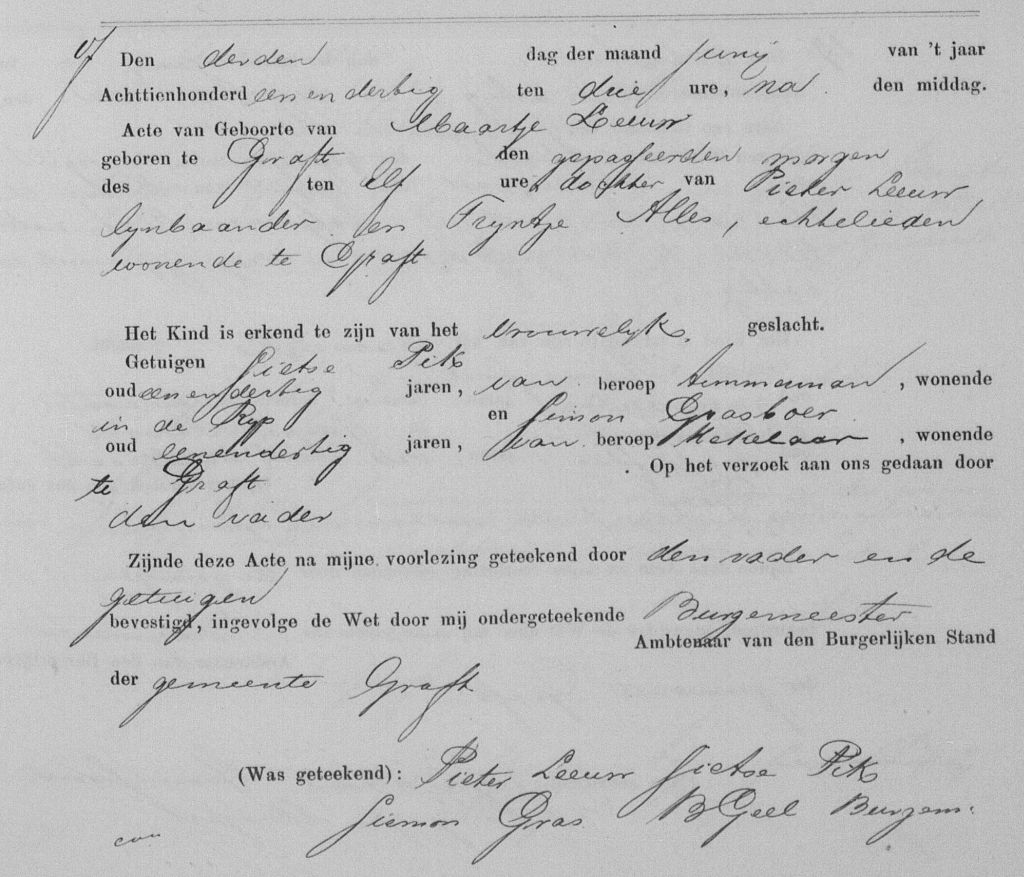 Den derden dag der maand Junij van 't jaar
Achttienhonderd een en dertig ten drie ure, na den middag.
Acte van Geboorte van Maartje Leeuw
geboren te Graft den gepasseerden morgen
des ten Elf ure, dochter van Pieter Leeuw
lynbaander en Tryntje Alles, echtelieden
wonende te Graft
Het Kind is erkend te zijn van het vrouwelyk geslacht.
Getuigen Sietse Pik
oud een en dertig jaren, van beroep timmerman, wonende
in de Ryp en Simon Grasboer
oud een en dertig jaren, van beroep Makelaar, wonende
te Graft. Op het verzoek aan ons gedaan door
den vader
Zijnde deze Acte na mijne voorlezing geteekend door den vader en de
getuigen
bevestigd, ingevolge de Wet door mij ondergeteekende Burgemeester
Ambtenaar van den Burgerlijken Stand
der gemeente Graft
(Was geteekend): Pieter Leeuw Sietse Pik
Siemon Gras B Geel Burgem: